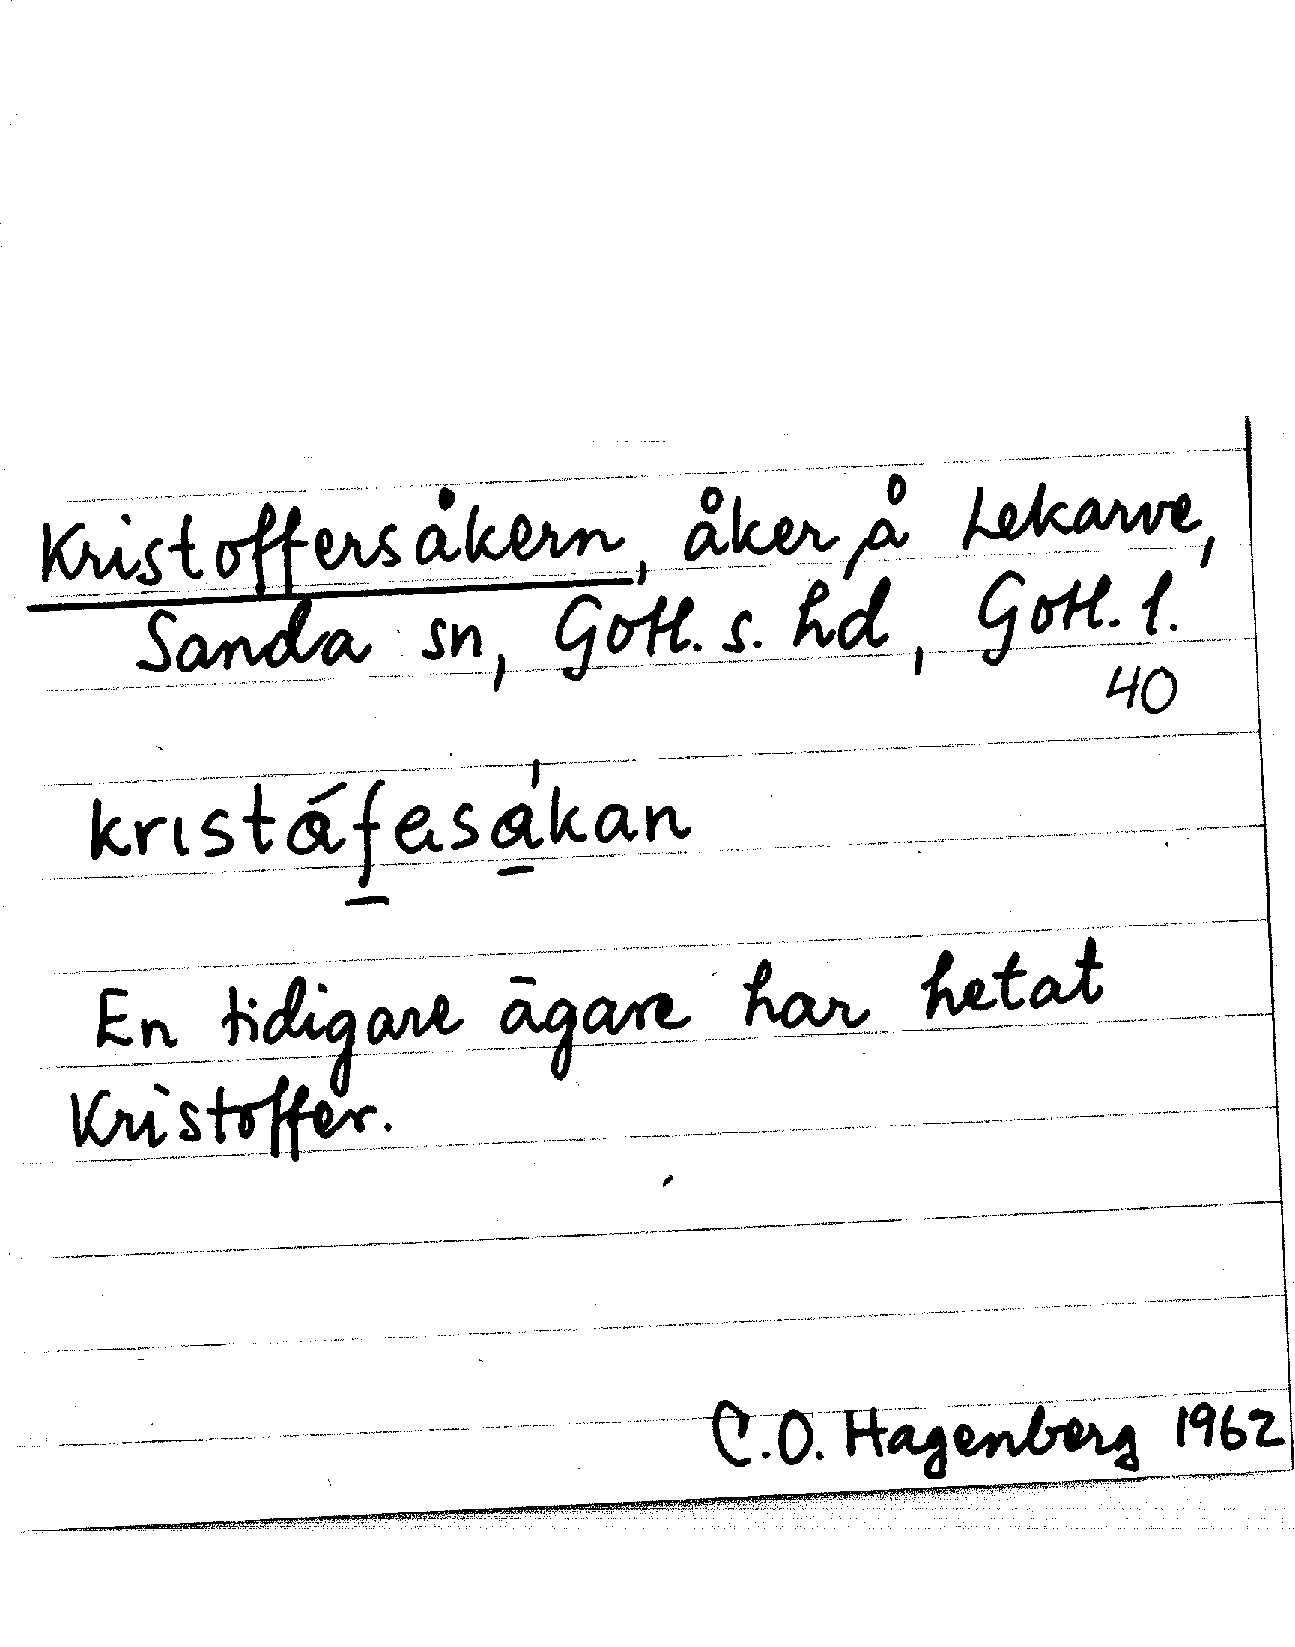 Kristoffersåkern, åker å Lekarve,
Sanda sn, Gotl. s. hd, Gotl. l.
40
kristáfesákan
En tidigare ägare har hetat
Kristoffer.
C.O. Hagenberg 1962